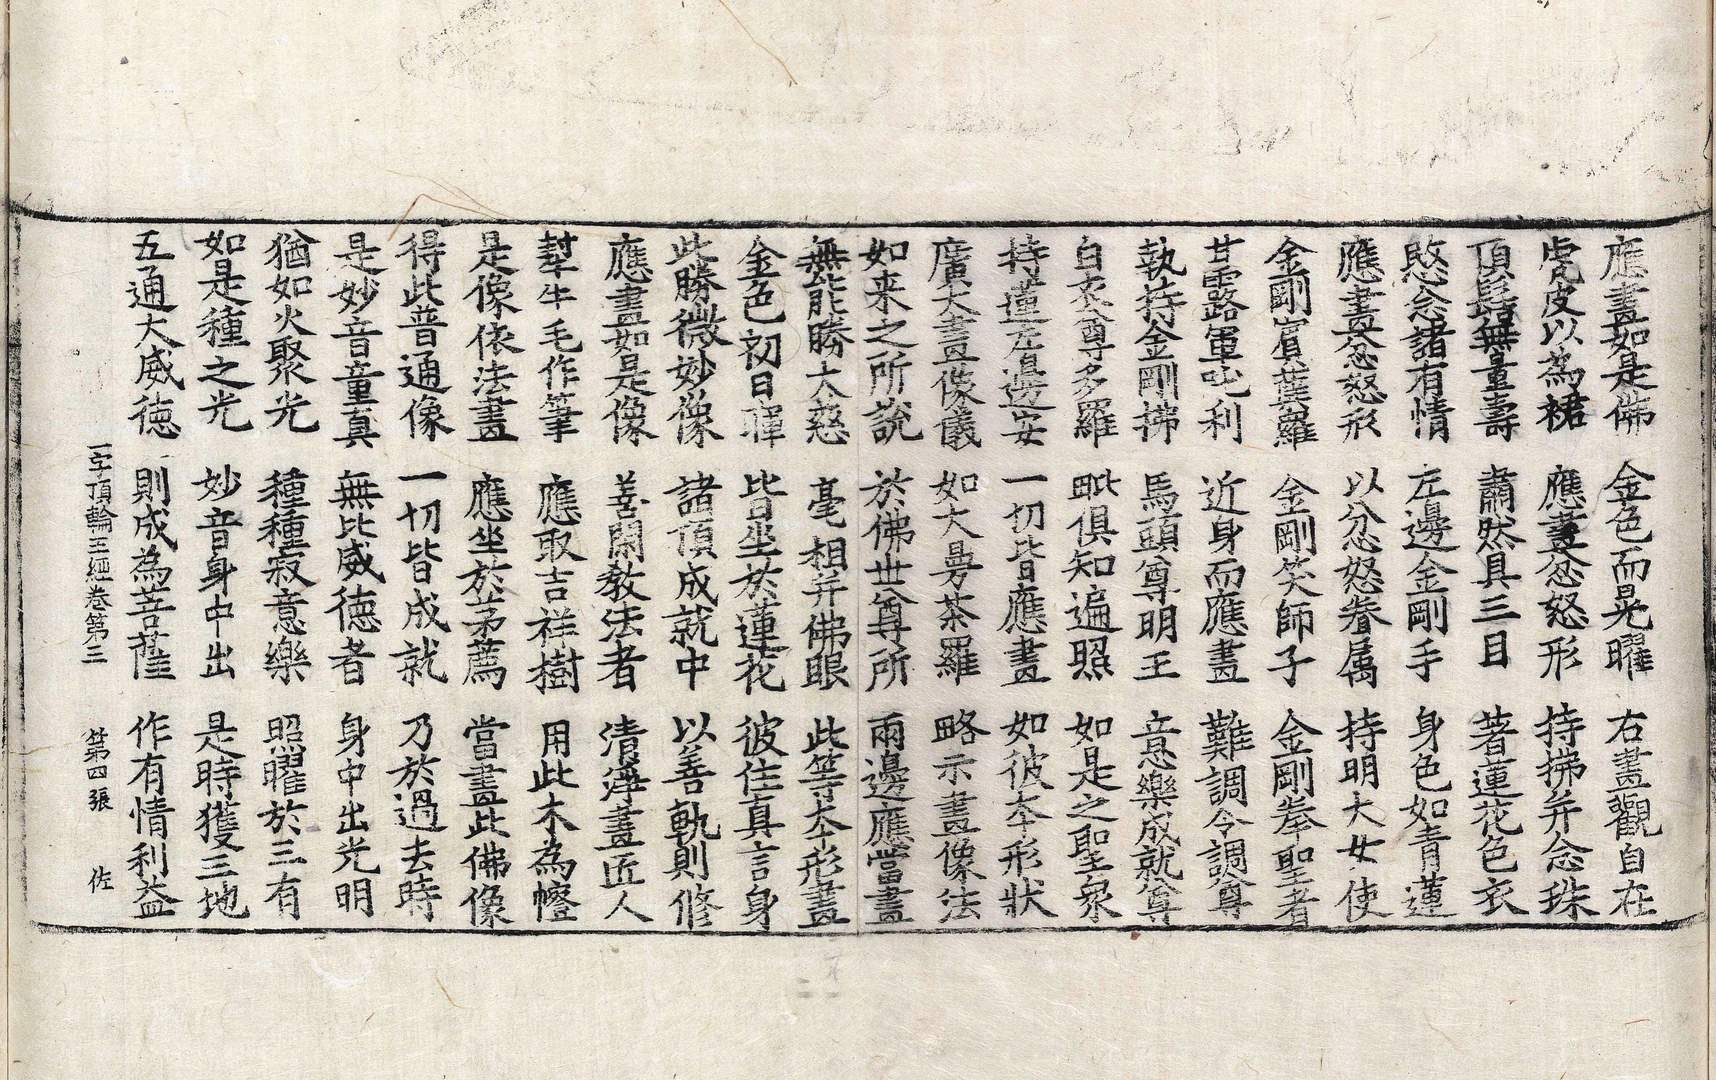 應畫如是佛 金色而晃曜 右畫觀自在
虎皮以為裙 應畫忿怒形 持拂并念珠
頂髻無量壽 肅然具三目 著蓮花色衣
愍念諸有情 左邊金剛手 身色如青蓮
應畫忿怒形 以忿怒眷属 持明大女使
金剛寶葉羅 金剛笑師子 金剛拳聖者
甘露軍吒利 近身而應畫 難調令調尊
執持金剛拂 馬頭尊明王 意樂成就尊
白衣尊多羅 毗俱知遍照 如是之聖眾
持蓮左邊安 一切皆應畫 如彼本形狀
廣大畫像儀 如大曼茶羅 略示畫像法
如来之所說 於佛世尊所 兩邊應當畫
無能勝大慈 毫相并佛眼 此等本形畫
金色初日暉 皆坐於蓮花 彼住真言身
此勝微妙像 諸頂成就中 以善軌則修
應畫如是像 善閑教法者 清淨畫匠人
犎牛毛作筆 應取吉祥樹 用此木為幢
是像依法畫 應坐於茅薦 當畫此佛像
得此普通像 一切皆成就 乃於過去時
是妙音童真 無比威德者 身中出光明
猶如火聚光 種種寂意樂 照曜於三有
如是種之光 妙音身中出 是時獲三地
五通大威德 則成為菩薩 作有情利益
一字頂輪王經卷第三 第四張 佐